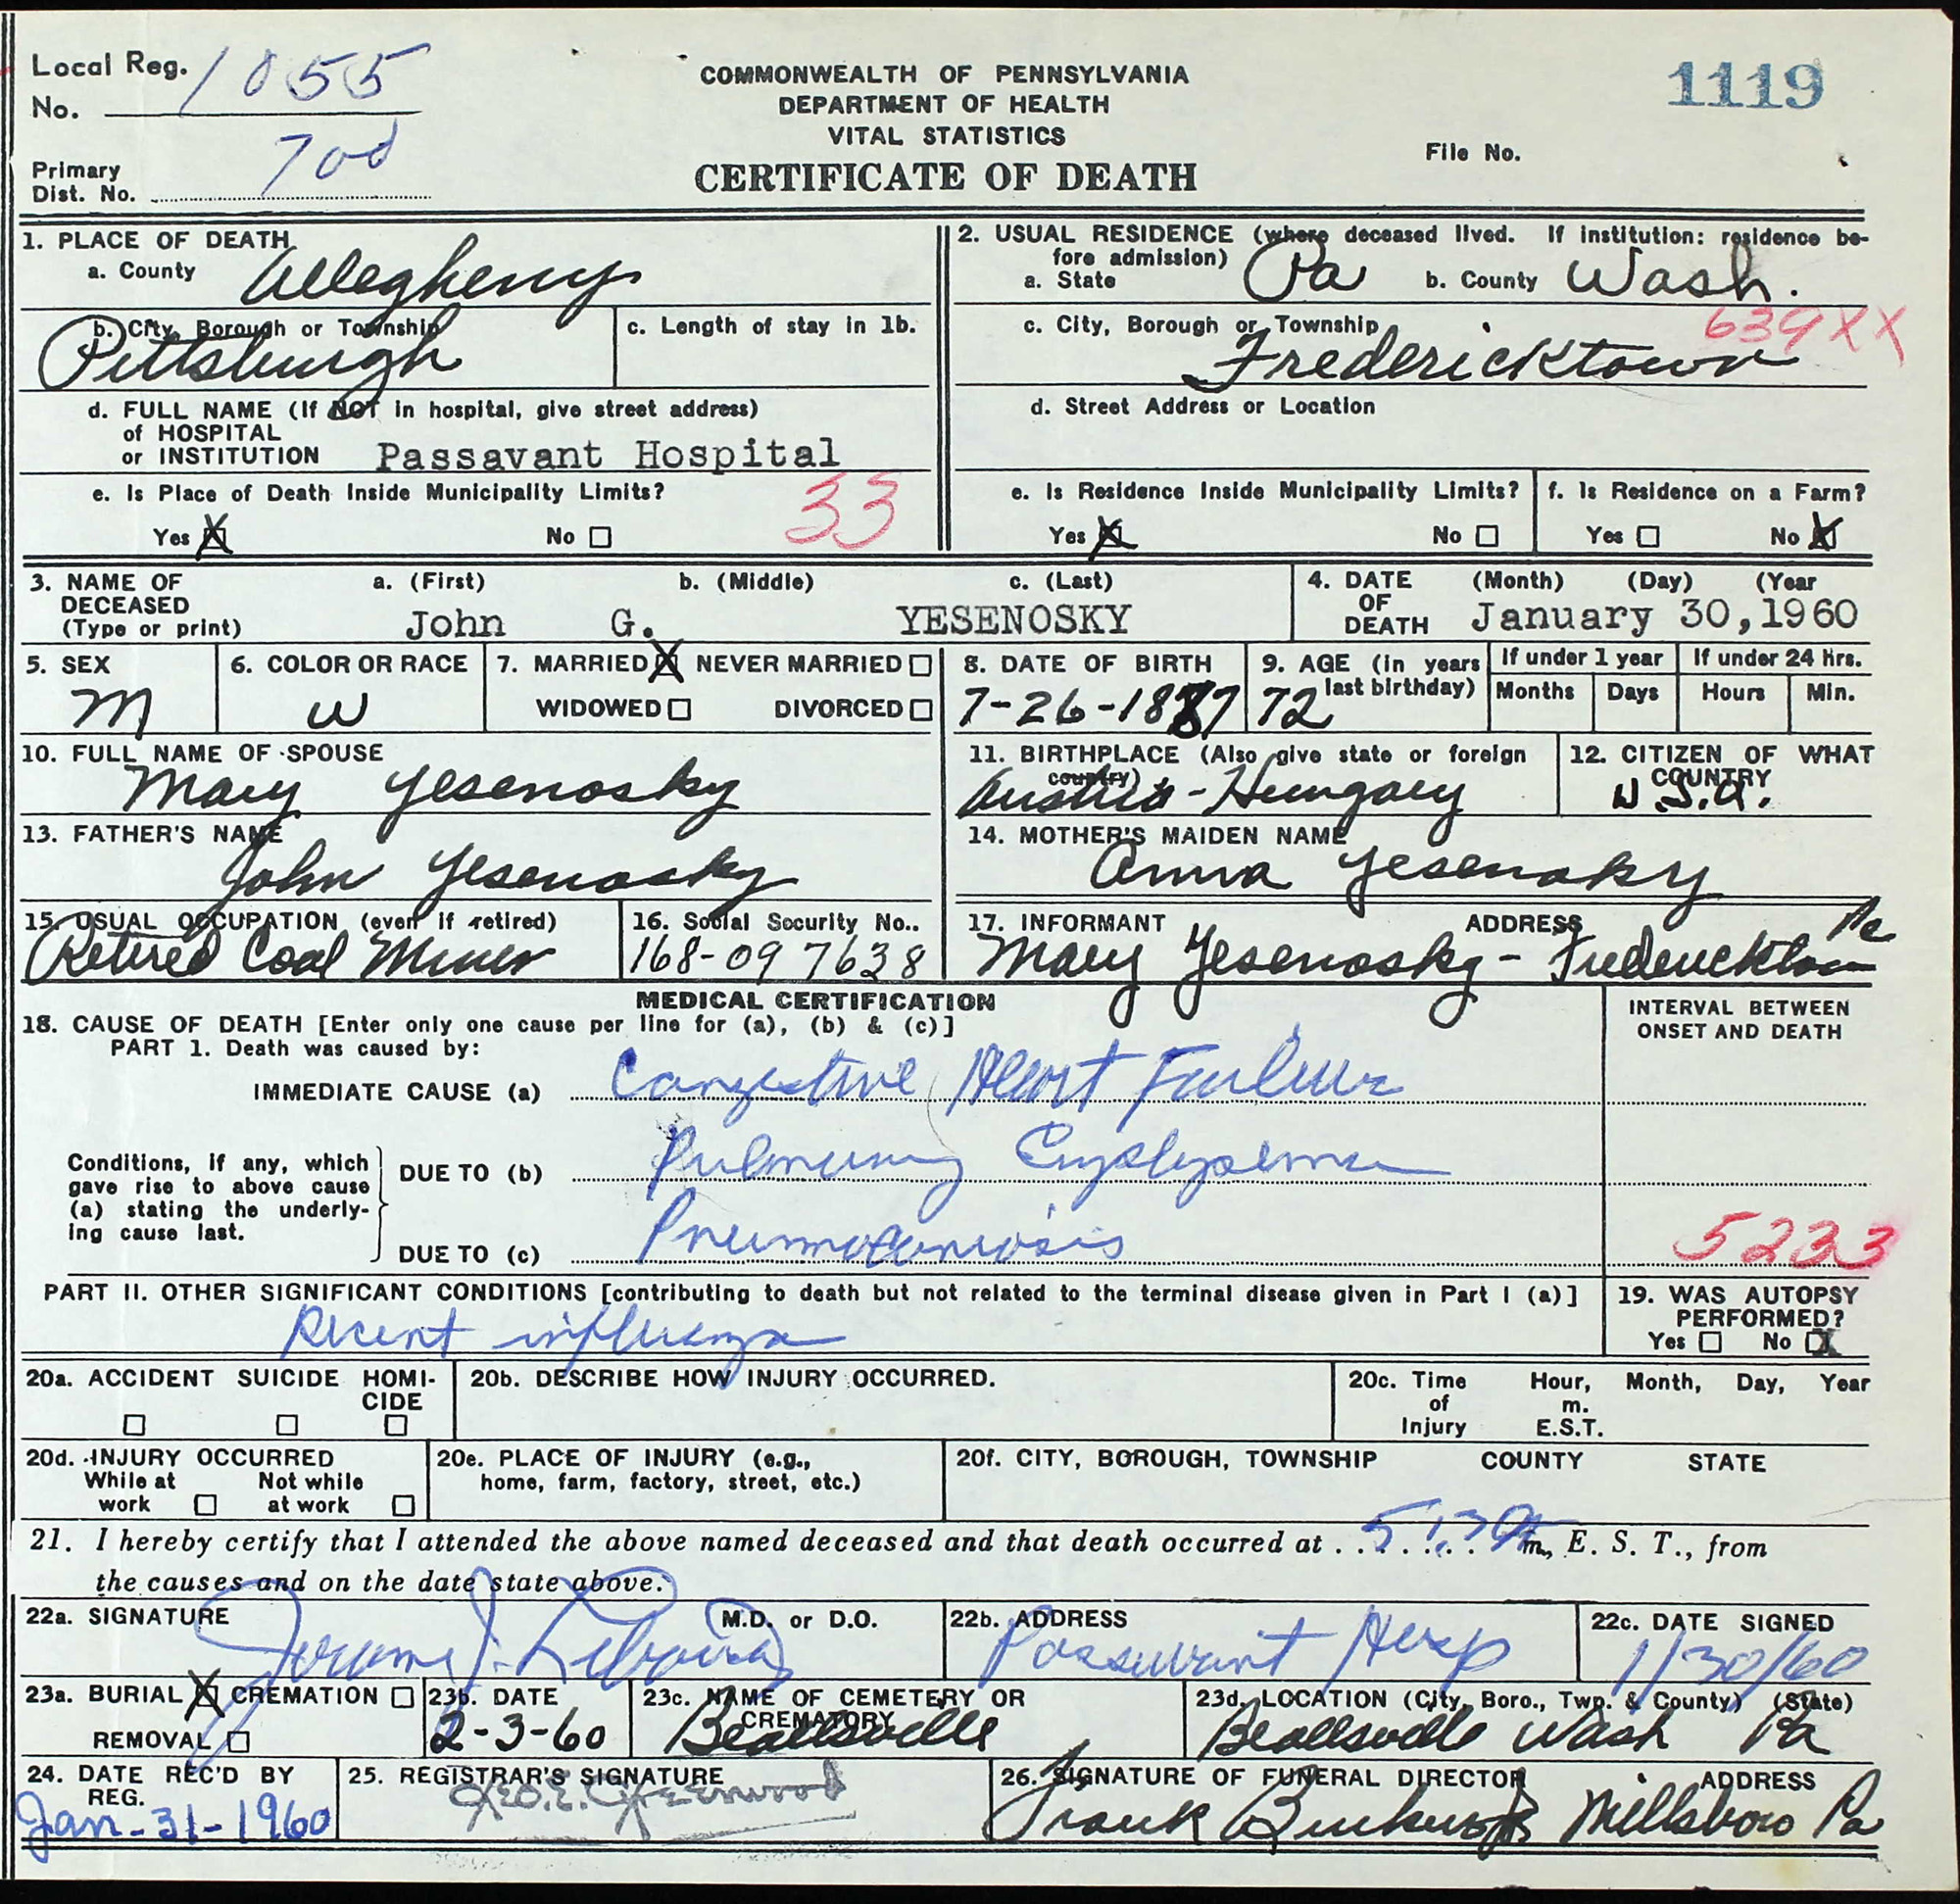 Local Reg. No. 1055
1119
COMMONWEALTH OF PENNSYLVANIA
DEPARTMENT OF HEALTH
VITAL STATISTICS
File No.
CERTIFICATE OF DEATH
Primary Dist. No.
1. PLACE OF DEATH
a. County Allegheny
b. City, Borough or Township Pittsburgh
c. Length of stay in 1b.
d. FULL NAME (If NOT in hospital, give street address)
of HOSPITAL
or INSTITUTION Passavant Hospital
e. Is Place of Death Inside Municipality Limits?
33
Yes X No
2. USUAL RESIDENCE (where deceased lived. If institution: residence be-
fore admission)
a. State Pa b. County Wash.
639XX
c. City, Borough or Township Fredericktown
d. Street Address or Location
e. Is Residence Inside Municipality Limits?
Yes X No
f. Is Residence on a Farm?
Yes No X
3. NAME OF DECEASED (Type or print)
a. (First) b. (Middle) c. (Last)
John G. YESENOSKY
4. DATE OF DEATH (Month) (Day) (Year
January 30,1960
5. SEX M
6. COLOR OR RACE W
7. MARRIED X NEVER MARRIED
WIDOWED DIVORCED
8. DATE OF BIRTH
7-26-1887
9. AGE (in years last birthday) 72
If under 1 year
Months Days
If under 24 hrs.
Hours Min.
10. FULL NAME OF SPOUSE
Mary Yesenosky
11. BIRTHPLACE (Also give state or foreign country)
Austria-Hungary
12. CITIZEN OF WHAT COUNTRY
U.S.A.
13. FATHER'S NAME
John Yesenosky
14. MOTHER'S MAIDEN NAME
Anna Yesenosky
15. USUAL OCCUPATION (even if retired)
Retired Coal Miner
16. Social Security No..
168-09 7638
17. INFORMANT ADDRESS
Mary Yesenosky - Fredericktown Pa
MEDICAL CERTIFICATION
18. CAUSE OF DEATH [Enter only one cause per line for (a), (b) & (c)]
PART 1. Death was caused by:
INTERVAL BETWEEN
ONSET AND DEATH
IMMEDIATE CAUSE (a) Congestive Heart Failure
Conditions, if any, which
gave rise to above cause
(a) stating the underly-
ing cause last.
DUE TO (b) Pulmonary Emphysema
DUE TO (c) Pneumoconiosis
5233
PART II. OTHER SIGNIFICANT CONDITIONS [contributing to death but not related to the terminal disease given in Part I (a)]
Recent influenza
19. WAS AUTOPSY
PERFORMED?
Yes No X
20a. ACCIDENT SUICIDE HOMI-
CIDE
20b. DESCRIBE HOW INJURY OCCURRED.
20c. Time of Injury Hour, m. E.S.T. Month, Day, Year
20d. INJURY OCCURRED
While at work Not while at work
20e. PLACE OF INJURY (e.g.,
home, farm, factory, street, etc.)
20f. CITY, BOROUGH, TOWNSHIP COUNTY STATE
21. I hereby certify that I attended the above named deceased and that death occurred at 5:30 m, E. S. T., from
the causes and on the date state above.
22a. SIGNATURE M.D. or D.O.
Jerome J.
22b. ADDRESS
Passavant Hosp
22c. DATE SIGNED
1/30/60
23a. BURIAL X CREMATION
REMOVAL
23b. DATE
2-3-60
23c. NAME OF CEMETERY OR CREMATORY
Beallsville
23d. LOCATION (City, Boro., Twp. & County) (State)
Beallsville Wash Pa
24. DATE REC'D BY REG.
Jan-31-1960
25. REGISTRAR'S SIGNATURE
Geo. E. Greenwood
26. SIGNATURE OF FUNERAL DIRECTOR ADDRESS
Frank Millsboro Pa